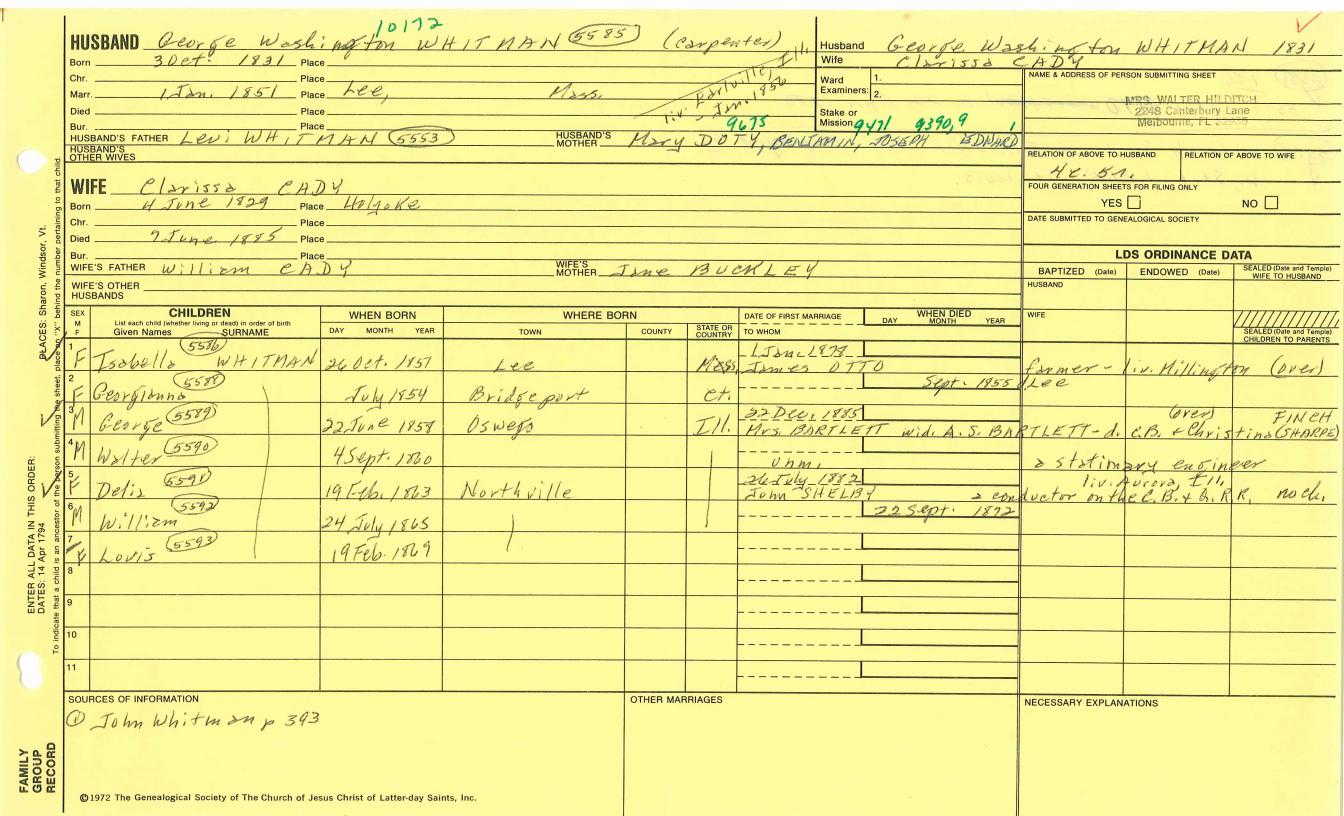 10172
HUSBAND George Washington WHITMAN 5585 (carpenter)
Born 3 Oct. 1831 Place
Chr. Place
Marr. 1 Jan. 1851 Place Lee, Mass.
liv. Earlville, Ill. Jan. 1856
Died Place
Bur. Place
HUSBAND'S FATHER Levi WHITMAN 5553 HUSBAND'S MOTHER Mary DOTY, BENJAMIN, JOSEPH EDWARD
9675 9471 9390,9 1
HUSBAND'S OTHER WIVES
Husband George Washington WHITMAN 1831
Wife Clarissa CADY
Ward Examiners: 1.
2.
Stake or Mission
NAME & ADDRESS OF PERSON SUBMITTING SHEET
MRS. WALTER HILDITCH
2248 Canterbury Lane
Melbourne, FL
RELATION OF ABOVE TO HUSBAND RELATION OF ABOVE TO WIFE
4c. 5r.
FOUR GENERATION SHEETS FOR FILING ONLY
YES NO
DATE SUBMITTED TO GENEALOGICAL SOCIETY
WIFE Clarissa CADY
Born 4 June 1829 Place Holyoke
Chr. Place
Died 7 June 1885 Place
Bur. Place
WIFE'S FATHER William CADY WIFE'S MOTHER Jane BUCKLEY
WIFE'S OTHER HUSBANDS
LDS ORDINANCE DATA
BAPTIZED (Date) ENDOWED (Date) SEALED (Date and Temple) WIFE TO HUSBAND
HUSBAND
WIFE
SEALED (Date and Temple) CHILDREN TO PARENTS
SEX M F CHILDREN WHEN BORN WHERE BORN DATE OF FIRST MARRIAGE WHEN DIED
List each child (whether living or dead) in order of birth
Given Names SURNAME DAY MONTH YEAR TOWN COUNTY STATE OR COUNTRY TO WHOM DAY MONTH YEAR
1 F Isabella WHITMAN 5586 26 Oct. 1851 Lee Mass. 1 Jan. 1873 James OTTO farmer - liv. Millington (over)
2 F Georgianna 5588 July 1854 Bridgeport Ct. Sept. 1855 Lee
3 M George 5589 22 June 1858 Oswego Ill. 22 Dec. 1885 Mrs. BARTLETT wid. A.S. BARTLETT - d. C.B. & Christina (SHARPE) FINCH (over)
4 M Walter 5590 4 Sept. 1860 unm. a stationary engineer
5 F Delia 5591 19 Feb. 1863 Northville 26 July 1882 John SHELBY liv. Aurora, Ill. a conductor on the C.B. & Q. R.R. no ch.
6 M William 5592 24 July 1865 22 Sept. 1872
7 F Lovis 5593 19 Feb. 1869
8
9
10
11
SOURCES OF INFORMATION
① John Whitman p 393
OTHER MARRIAGES
NECESSARY EXPLANATIONS
©1972 The Genealogical Society of The Church of Jesus Christ of Latter-day Saints, Inc.
FAMILY GROUP RECORD
ENTER ALL DATA IN THIS ORDER:
DATES: 14 Apr 1794
PLACES: Sharon, Windsor, Vt.
To indicate that a child is an ancestor of the person submitting the sheet, place an "X" behind the number pertaining to that child.